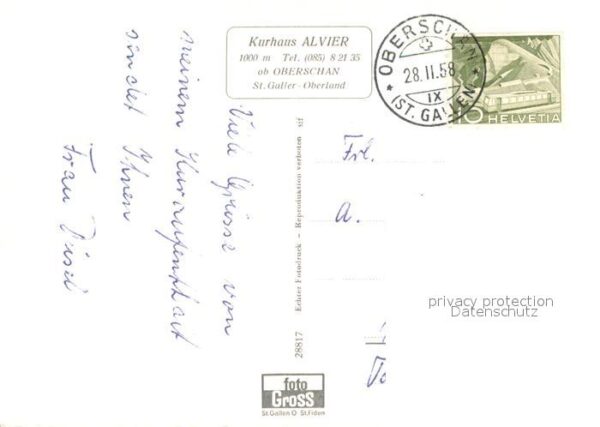 Kurhaus ALVIER
1000 m Tel. (085) 8 21 35
ob OBERSCHAN
St. Galler-Oberland
OBERSCHAN
28.II.58.
IX
(ST. GALLEN)
10 HELVETIA
Viele Grüsse von
meinem Kuraufenthalt
sendet Ihnen
Frau
Frl.
A.
28817 Echter Fotodruck – Reproduktion verboten
privacy protection
Datenschutz
foto
Gross
St.Gallen O St.Fiden